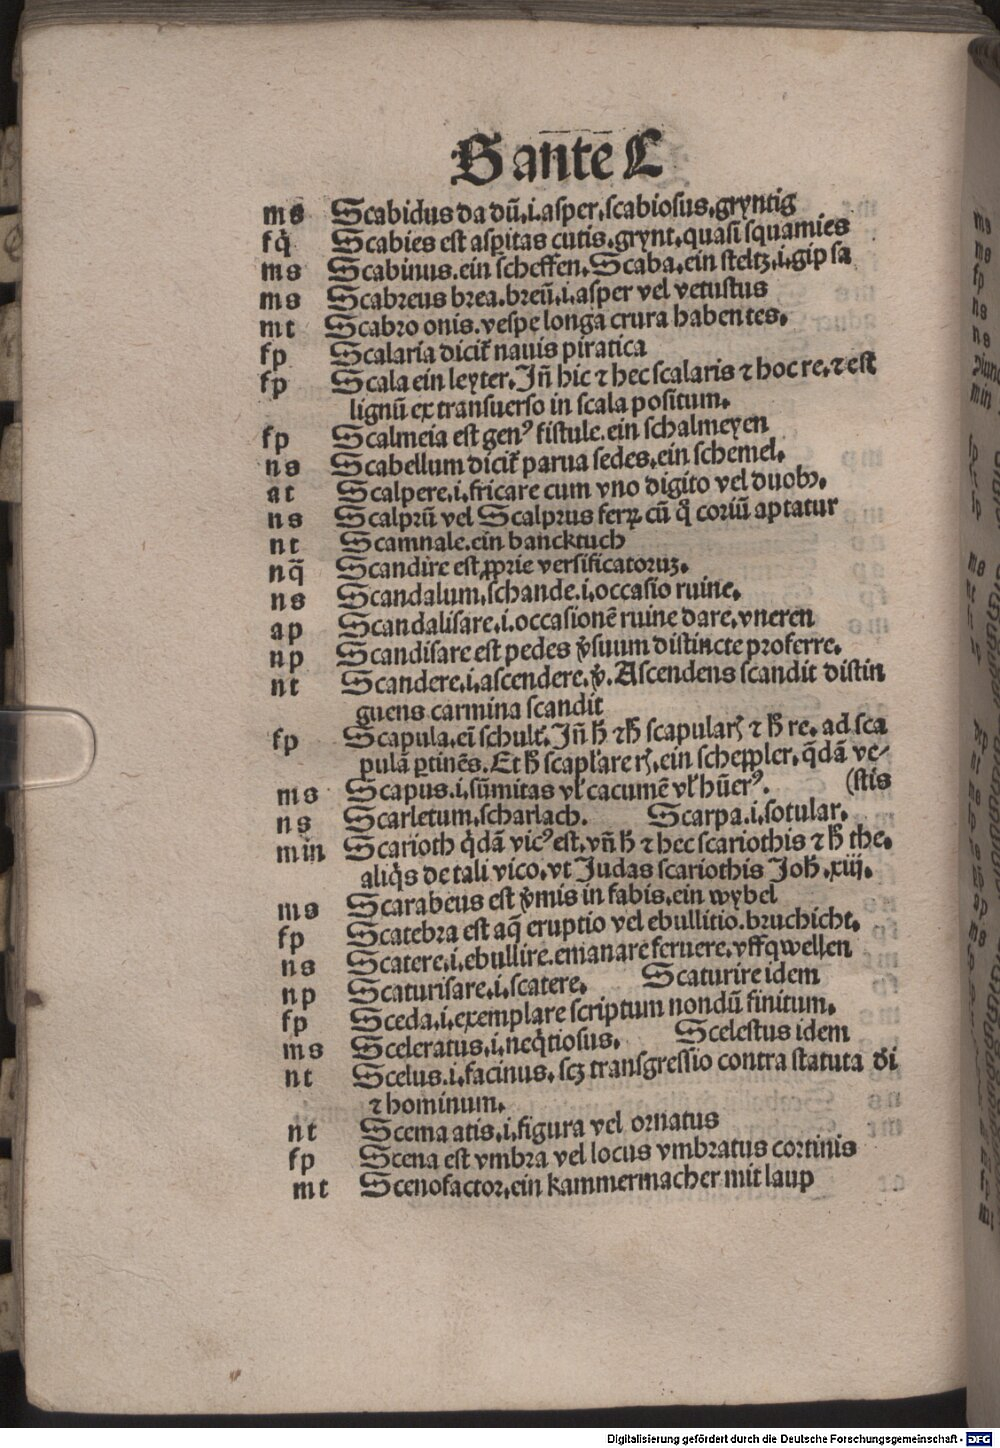 S an̄tē C
ms Scabidus da dū.i.asper.scabiosus.gryntig
fq̄ Scabies est asꝑitas cutis.grynt.quasi squamies
ms Scabinus.ein scheffen.Scaba.ein steltz.i.gip sa
ms Scabreus brea.breū.i.asper vel vetustus
mt Scabro onis.vespe longa crura habentes.
fp Scalaria dicit᷑ nauis piratica
fp Scala ein leyter.Jn̄ hic ⁊ hec scalaris ⁊ hoc re.⁊ est
lignū ex transuerso in scala positum.
fp Scalmeia est genꝰ fistule.ein schalmeyen
ns Scabellum dicit᷑ parua sedes.ein schemel.
at Scalpere.i.fricare cum vno digito vel duobꝰ.
ns Scalprū vel Scalprus ferꝝ cū q̊ coriū aptatur
nt Scamnale.ein bancktuch
nq̄ Scandire est ꝓprie versificatorum.
ns Scandalum.schande.i.occasio ruine.
ap Scandalisare.i.occasionē ruine dare.vneren
np Scandisare est pedes v̓suum distincte proferre.
nt Scandere.i.ascendere.v̓.Ascendens scandit distin
guens carmina scandit
fp Scapula.eī schult᷑.Jn̄ h̄ ⁊ h̄ scapularꝭ ⁊ h̄ re.ad sca
pulā ꝑtinēs.Et h̄ scapl'are rꝭ.ein scheppler.q̄dā ve⸗
ms Scapus.i.sūmitas vl' cacumē vl' hūerꝰ. (stis
ns Scarletum.scharlach. Scarpa.i.sotular.
min Scarioth q̇dā vicꝰ est.vn̄ h̄ ⁊ hec scariothis ⁊ h̄ the.
aliq̇s de tali vico.vt Judas scariothis Joh̄.xiij.
ms Scarabeus est v̓mis in fabis.ein wybel
fp Scatebra est aq̄ eruptio vel ebullitio.bruchicht.
ns Scatere.i.ebullire.emanare feruere.vffqwellen
np Scaturisare.i.scatere. Scaturire idem
fp Sceda.i.exemplare scriptum nondū finitum.
ms Sceleratus.i.neq̇tiosus. Scelestus idem
nt Scelus.i.facinus.scꝫ transgressio contra statuta di
⁊ hominum.
nt Scema atis.i.figura vel ornatus
fp Scena est vmbra vel locus vmbratus cortinis
mt Scenofactor.ein kammermacher mit laup
Digitalisierung gefördert durch die Deutsche Forschungsgemeinschaft - DFG